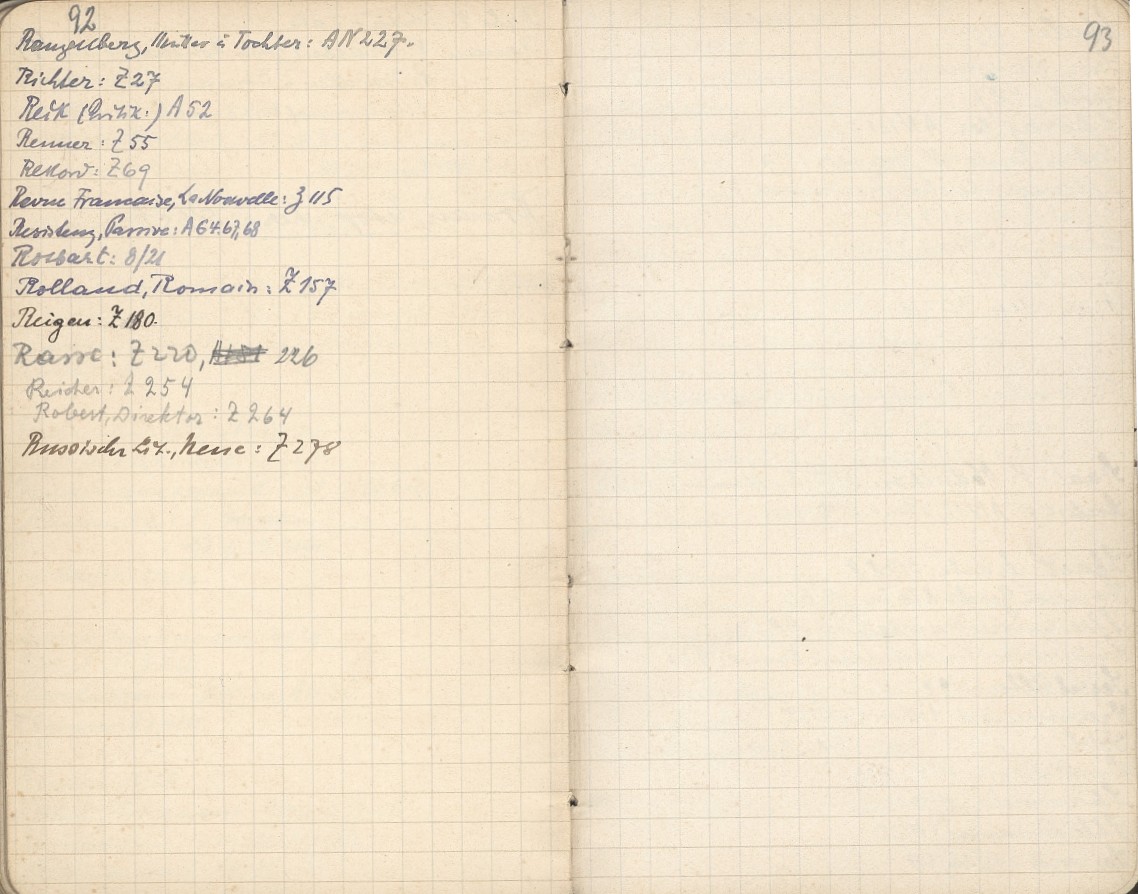 92
Rangelberg, Mutter u Tochter: AN 227.
Richter: Z 27
Reik (Kritik.) A 52
Renner: Z 55
Rekord: Z 69
Revue Francaise, La Nouvelle: Z 115
Resistenz, Passive: A 64. 67, 68
8/21
Rolland, Romain: Z 157
Reigen: Z 180.
Rasse: Z 220, 226
Reicher: Z 254
Robert, Direktor: Z 264
Russische Lit., Neue: Z 278
93